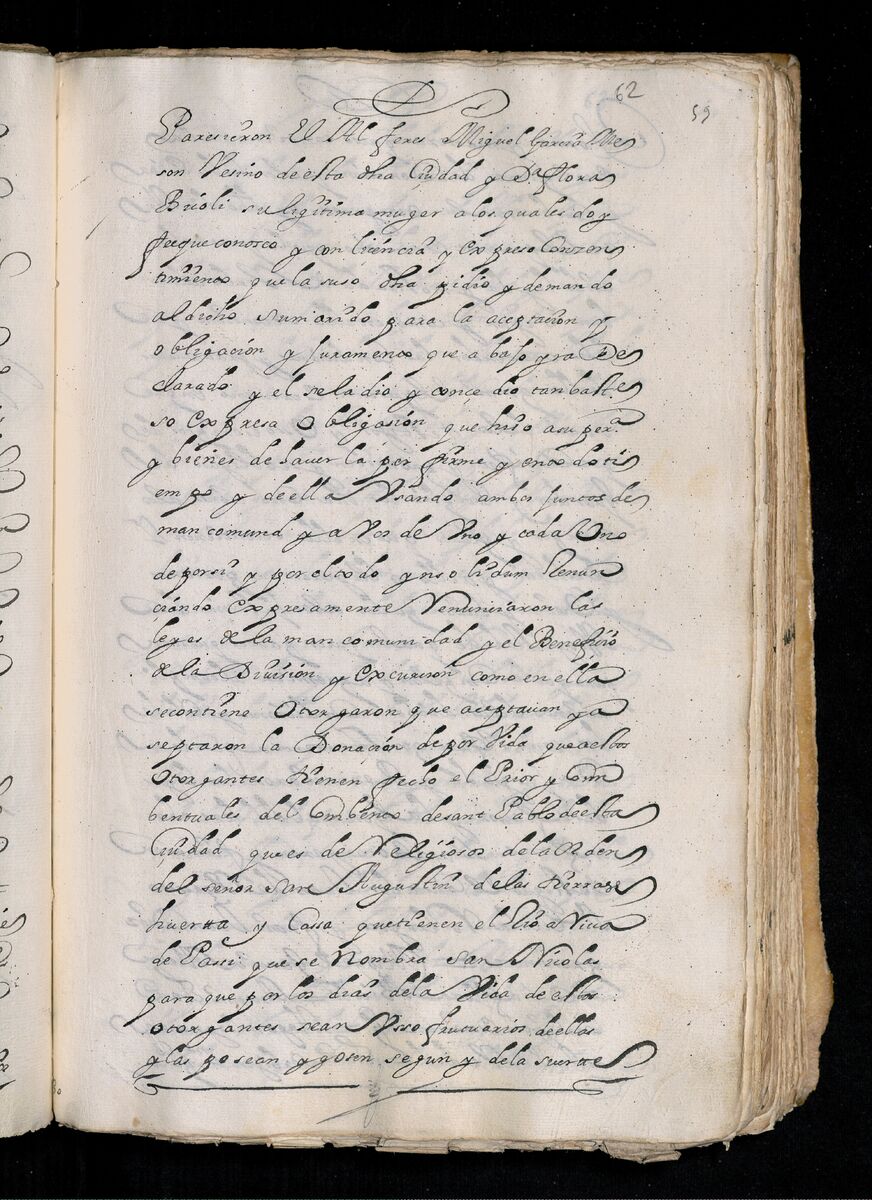 62
59
Paresieron El Alferes Miguel Garcia Me
son Vesino de esta dha Ciudad y Da Flora
Bucoli su ligitima muger a los quales doy
fee que conosco y con licencia y expreso Conzen
timiento que la suso dha pidio y demando
al dicho su marido para la aceptacion y
obligacion y Juramento que abajo yra De
clarado y el se la dio y conçedio tan bast.e
so expresa Obligasion que hiso a su per.a
y bienes de haver la por firme y en todo ti
empo y de ella Usando ambos Juntos de
man comund y a Vos de Uno y cada Uno
de por si y por el todo ynsolidum Renun
ciando expresamente Renunciaron las
leyes de la man comunidad y el Beneficio
de la Division y excurcion como en ella
se contiene Otorgaron que aceptavan y a
septaron la Donacion de por Vida que a estos
Otorgantes tienen fecho el Prior y Com
bentuales del Combento de sant Pablo de esta
Ciudad que es de Religiosos de la Orden
del señor San Augustin de las tierras
huertta y Cassa que tienen el Rio a Riva
de Passi que se Nombra San Nicolas
para que por los dias de la Vida de estos
otorgantes sean Usso fructuarios de ellas
y las posean y gosen segun y de la suertte